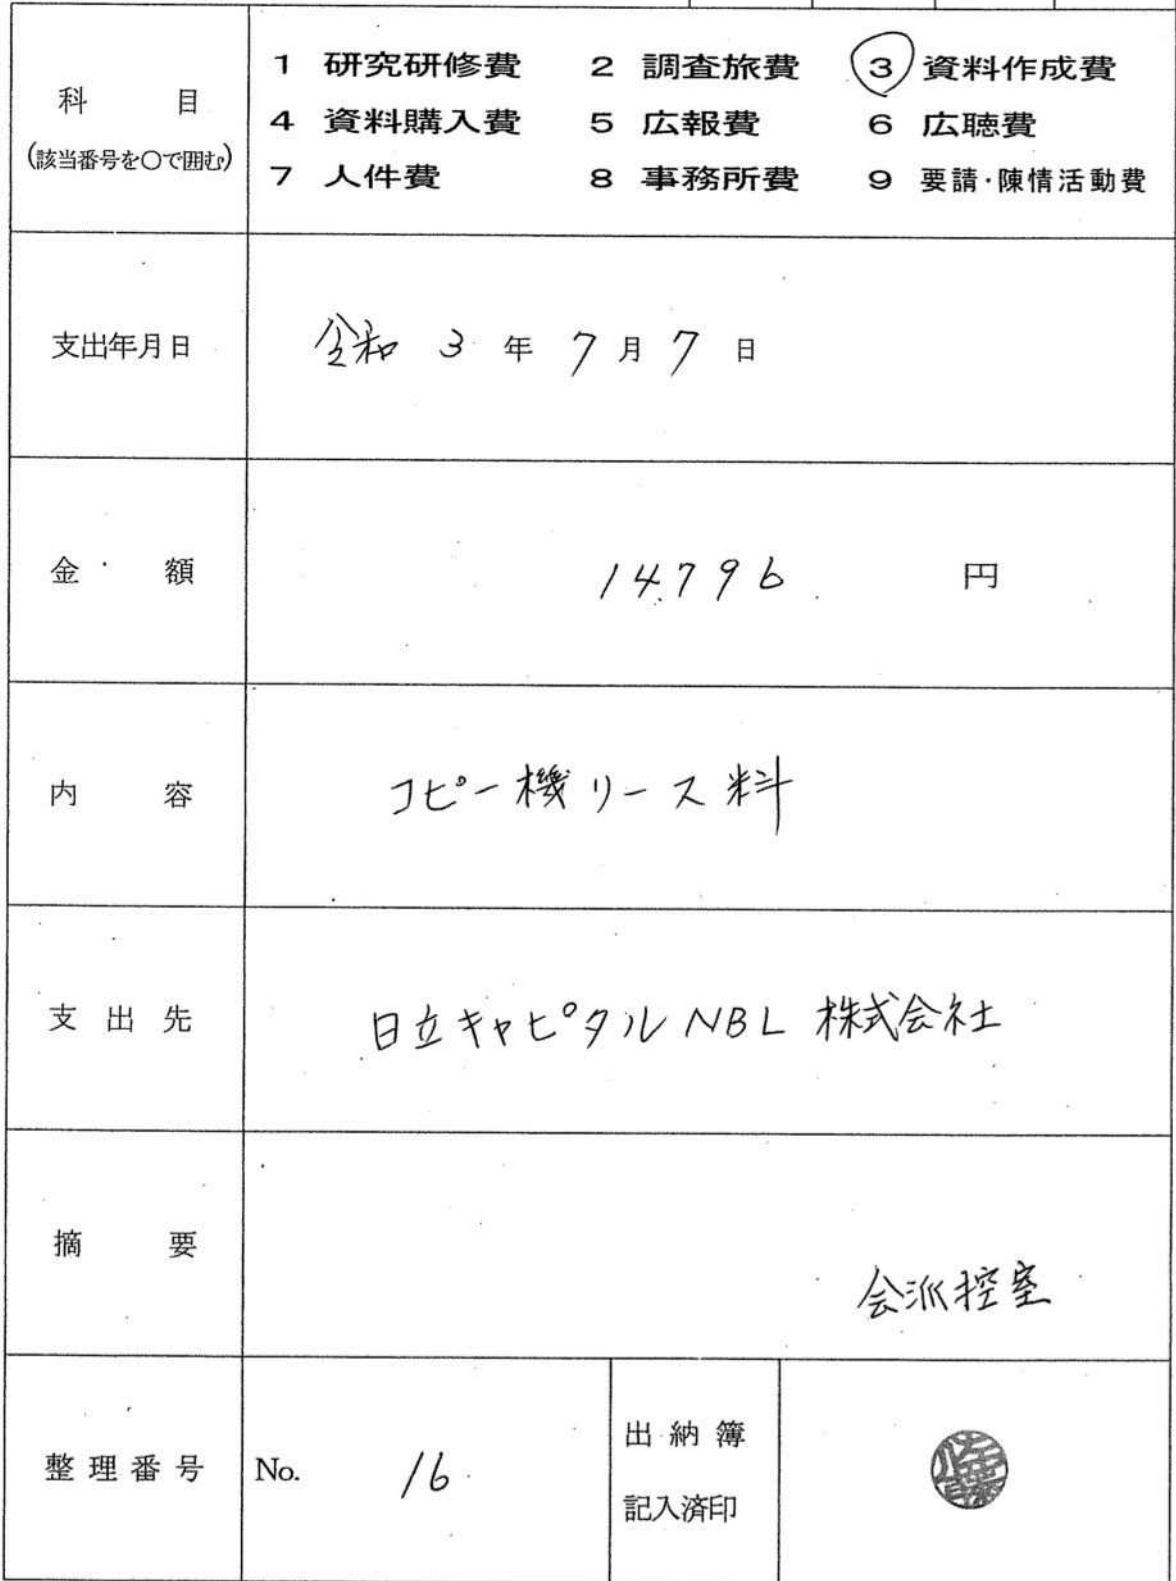 科目
(該当番号を○で囲む)
1 研究研修費 2 調査旅費 3 資料作成費
4 資料購入費 5 広報費 6 広聴費
7 人件費 8 事務所費 9 要請・陳情活動費
支出年月日 令和 3 年 7 月 7 日
金額 14,796 円
内容 コピー機リース料
支出先 日立キャピタルNBL 株式会社
摘要
会派控室
整理番号 No. 16
出納簿
記入済印